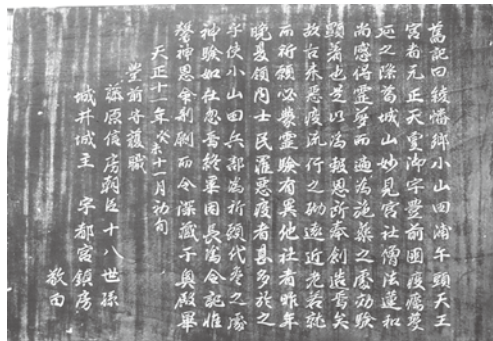 舊記曰綾幡郷小山田浦午頭天王
宮者元正天皇御宇豐前國疫癘蔓
延之際葛城山妙見宮社僧法蓮和
尚感得靈夢而遍為施藥之處効驗
顯著也是以為報恩所奉創造焉矣
故古来悪疫流行之砌遠近老若就
而祈願必蒙靈驗有異他社者昨年
晩夏領内士民罹悪疫者甚多於之
乎使小山田兵部為祈願代参之處
神驗如在忽終畢因為令記惟
神恩命剞劂而令深藏于奥殿畢
天正十一年癸未十一月初旬
豊前守護職
藤原信房朝臣十八世孫
城井城主 宇都宮鎮房
敬白